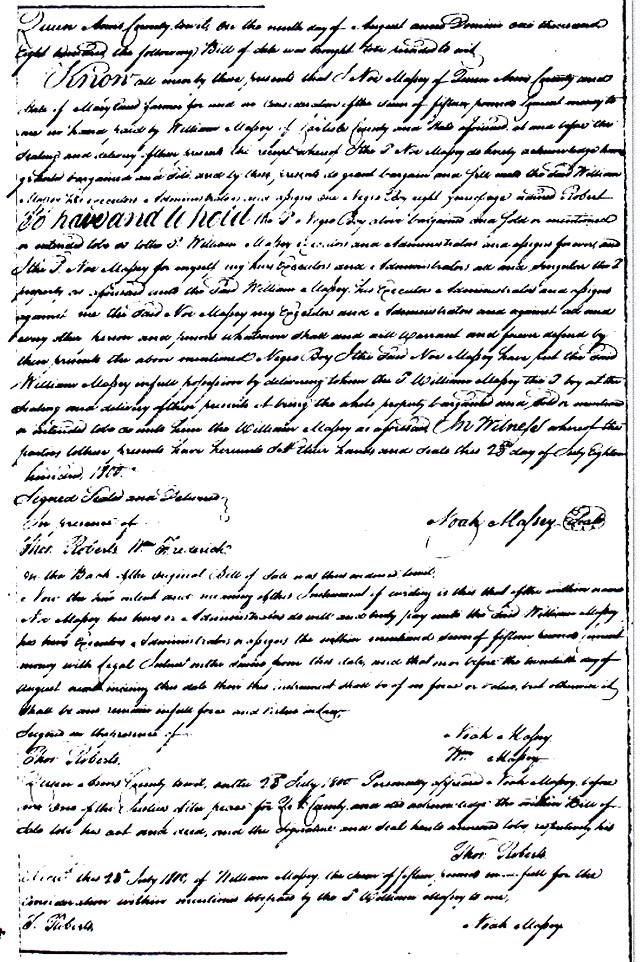 Queen Anns County towit, On the ninth day of August anno Domini one thousand
Eight hundred, the following Bill of Sale was brought to be recorded to wit,
Know all men by these presents that I Noe Massey of Queen Anns County and
State of Maryland farmer for and in consideration of the sum of fifteen pounds Current money to
me in hand paid by William Massey of County and State aforesaid, at and before the
Sealing and delivery of these presents the receipt whereof I the S. Noe Massey do hereby acknowledge have
granted bargained and Sold, and by these presents do grant bargain and Sell unto the Said William
Massey his executors Administrators and assigns one Negro Boy eight years of age named Robert
To have and to hold the S. Negro Boy above bargained and Sold or mentioned
or intended to be to the S. William Massey Executors and Administrators and assigns forever, and
I the S. Noe Massey for myself my heirs Executors and Administrators all and Singular the S.
property as aforesaid unto the Said William Massey his Executors Administrators and assigns
against me the Said Noe Massey my Executors and Administrators and against all and
every other person and persons whatsoever Shall and will Warrant and forever defend by
these presents the above mentioned Negro Boy I the Said Noe Massey have put the Said
William Massey in full possession by delivering to him the S. William Massey the S. boy at the
Sealing and delivery of these presents it being the whole property bargained and Sold or mentioned
or intended to be unto him the William Massey as aforesaid, In Witness whereof the
parties to these presents have hereunto Set their hands and Seals this 28th day of July Eighteen
hundred, 1800.
Signed Seald and Delivered
In presence of Noah Massey Seal
Thos. Roberts Wm. Frederick
On the Back of the original Bill of Sale was thus endorsed towit.
Now the true intent and meaning of this Instrument of writing is this that if the within name
Noe Massey his heirs or Administrators do well and truly pay unto the Said William Massey
his heirs Executors Administrators or assigns the within mentioned Sum of fifteen pounds current
money with Legal Interest on the Same from this date, and that on or before the twentieth day of
August next ensuing this date then this instrument Shall be of no force or value, but otherwise it
Shall be and remain in full force and virtue in law,
Signed in the presence of Noah Massey
Thos. Roberts. Wm. Massey
Queen Anns County towit, on the 28th July 1800 Personally appeared Noah Massey, before
me One of the Justices of the peace for S. County, and did acknowledge the within Bill of
Sale to be his act and deed, and the Signature and Seal hereto annexed to be, respectively his
Thos. Roberts
this 28th July 1800, of William Massey the sum of fifteen pounds in full for the
Consideration within mentioned by the S. William Massey to me,
T. Roberts. Noah Massey